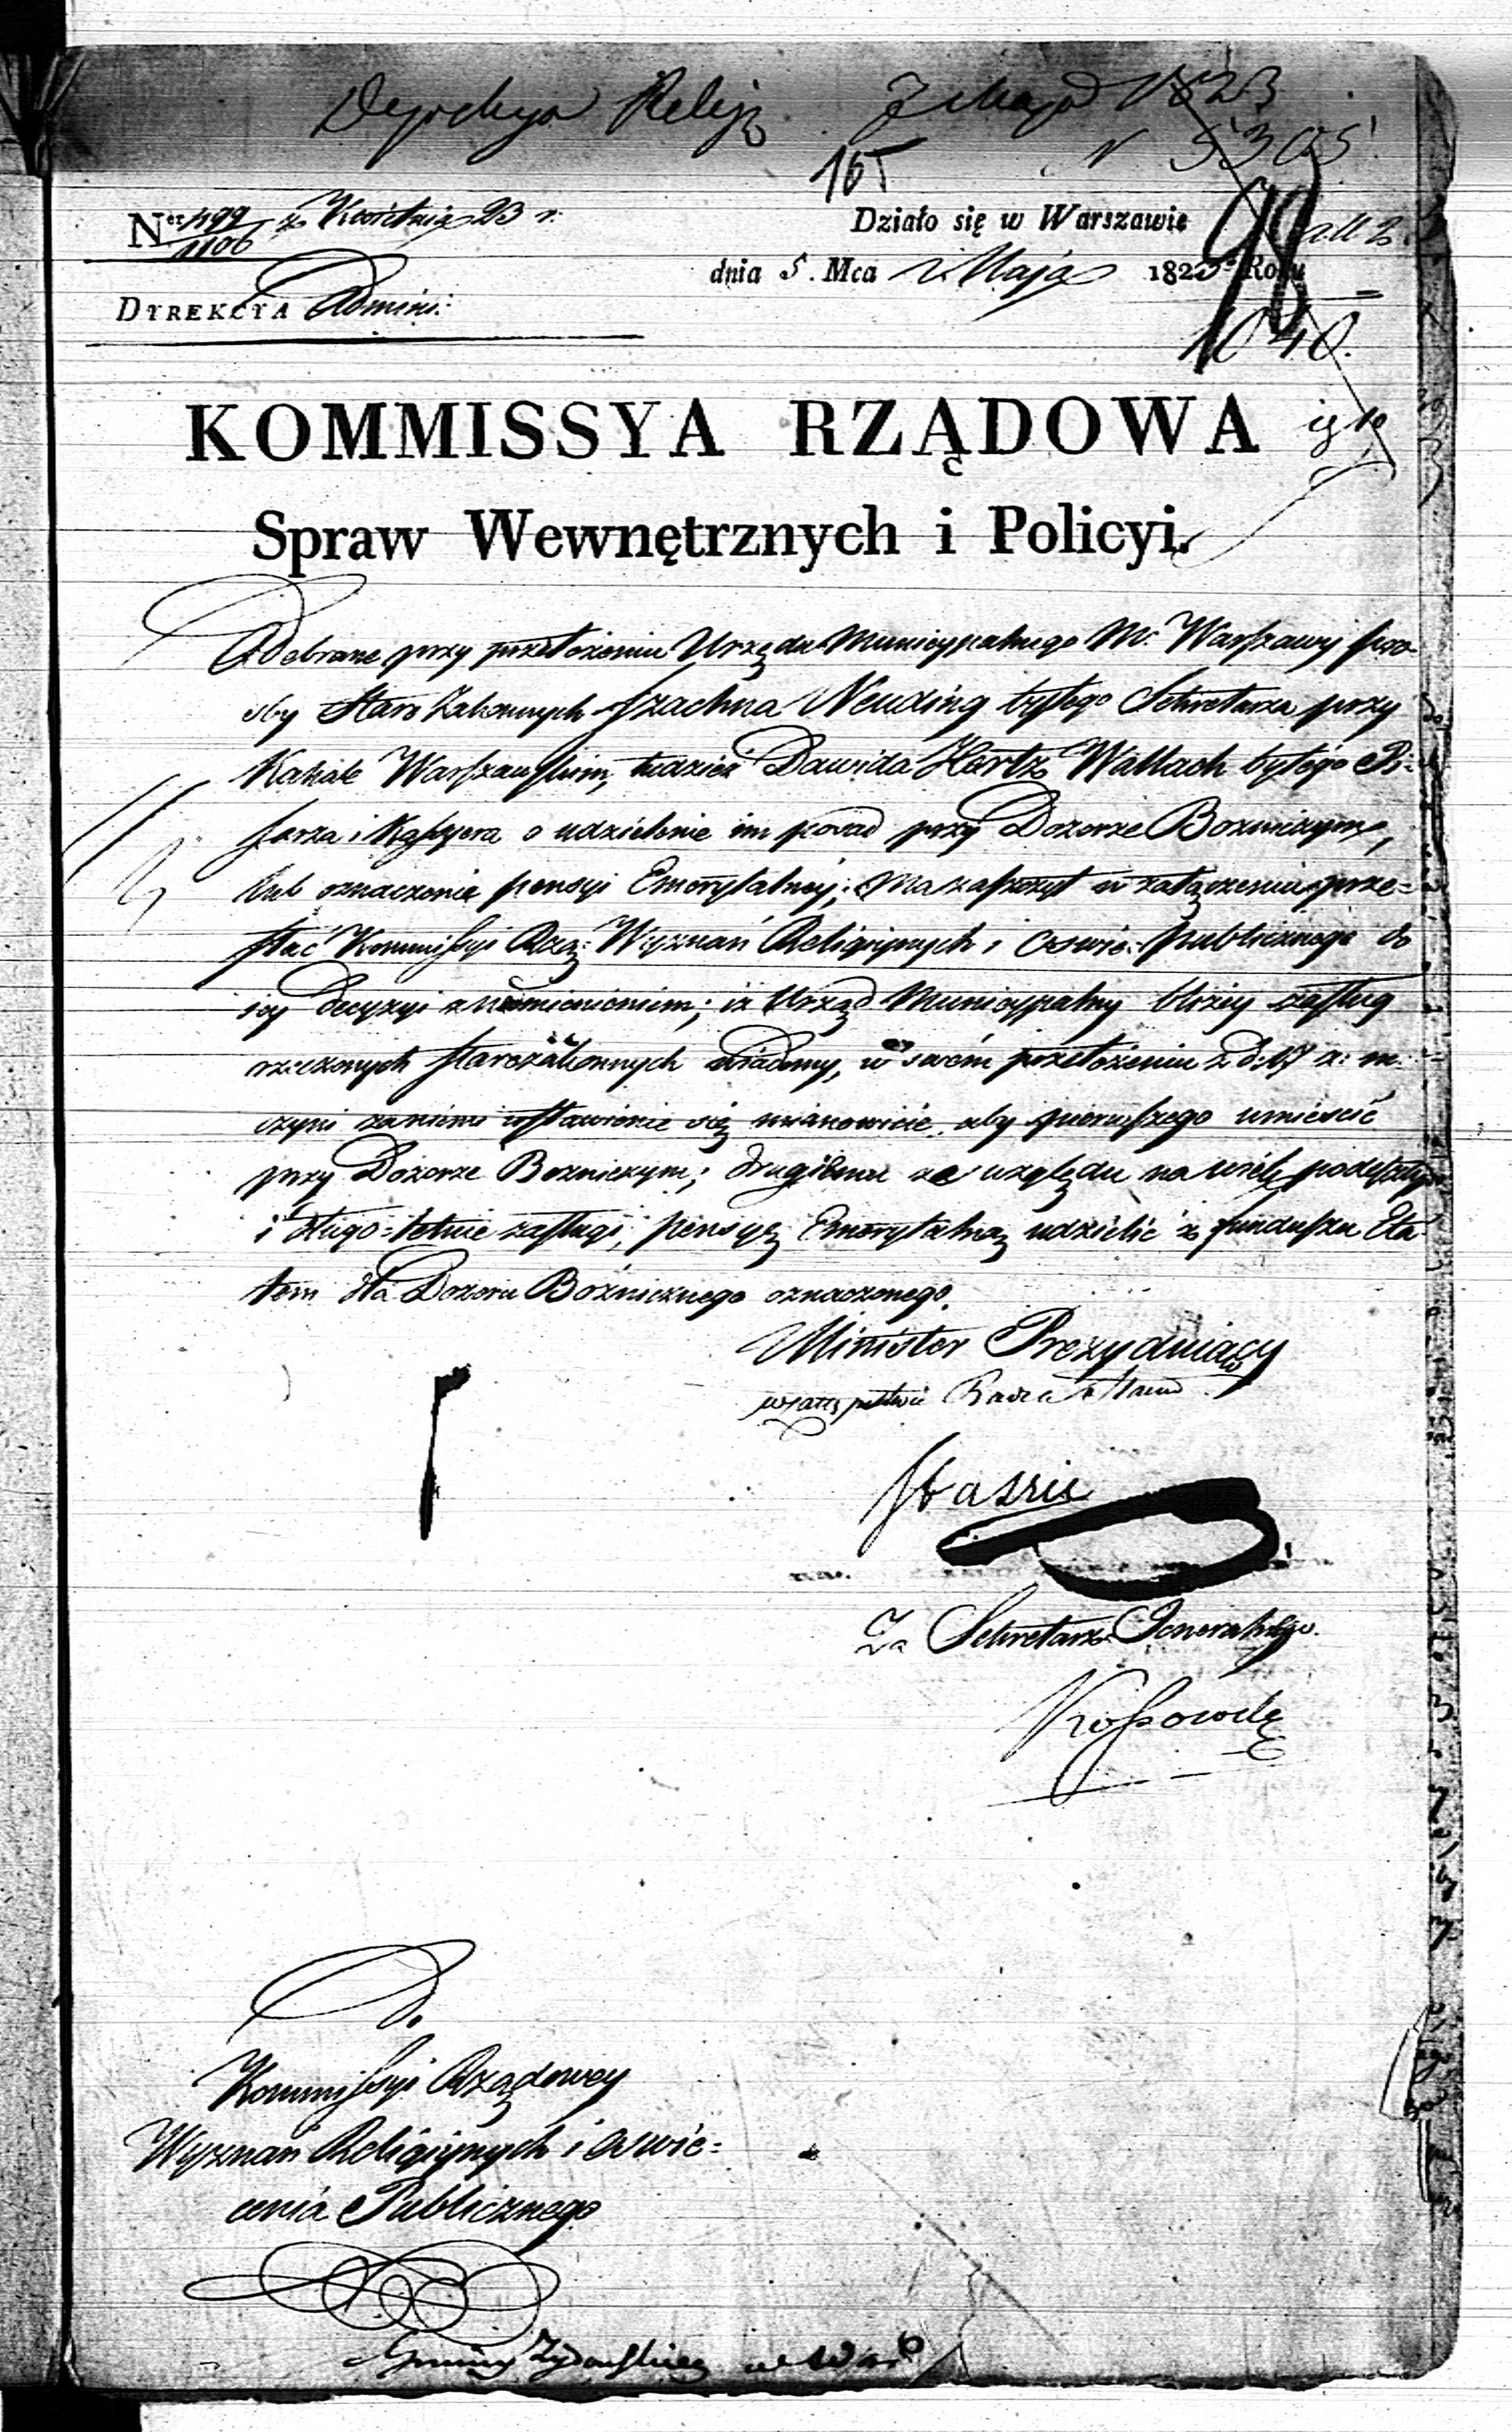 Dyrekcya Relig: 7 Maja 1823
N 5305
165
Nro 499/1106 z Kwietnia 23 r:
Działo się w Warszawie
98
dnia 5. Mca Maja 1823 Roku
DYREKCYA Admini:
1040.
KOMMISSYA RZĄDOWA
Spraw Wewnętrznych i Policyi.
Odebrane przy przełożeniu Urzędu Municypalnego M. Warszawy proź-
by Starozakonnych Szachna Neuding byłego Sekretarza przy
Kahale Warszawskim, tudzież Dawida Hertz Wallach byłego Pi-
sarza i Kassyera o udzielenie im posad przy Dozorze Bozniczym,
lub oznaczenie pensyi Emerytalney; ma zaszczyt w załączeniu prze-
słać Kommissyi Rzą: Wyznań Religiynych i Oświe: Publicznego do
iey decyzyi z nadmienieniem; iż Urząd Municypalny bliżey zasług
rzeczonych starozakonnych wiadomy, w swém przełożeniu z d: 17 z: m:
czyni za niemi wstawienie się mianowicie, aby pierwszego umieścić
przy Dozorze Bozniczym; drugiemu ze względu na wiek podeszły
i długo-letnie zasługi, pensyę Emerytalną udzielić z funduszu Eta-
tem dla Dozoru Bóżnicznego oznaczonego.
Minister Prezyduiący
w zastępstwie Radca Stanu
Staszic
Za Sekretarza Generalnego.
Kossowski
Do
Kommissyi Rządowey
Wyznań Religiynych i Oświe-
cenia Publicznego
Gminy Żydowskiey w War